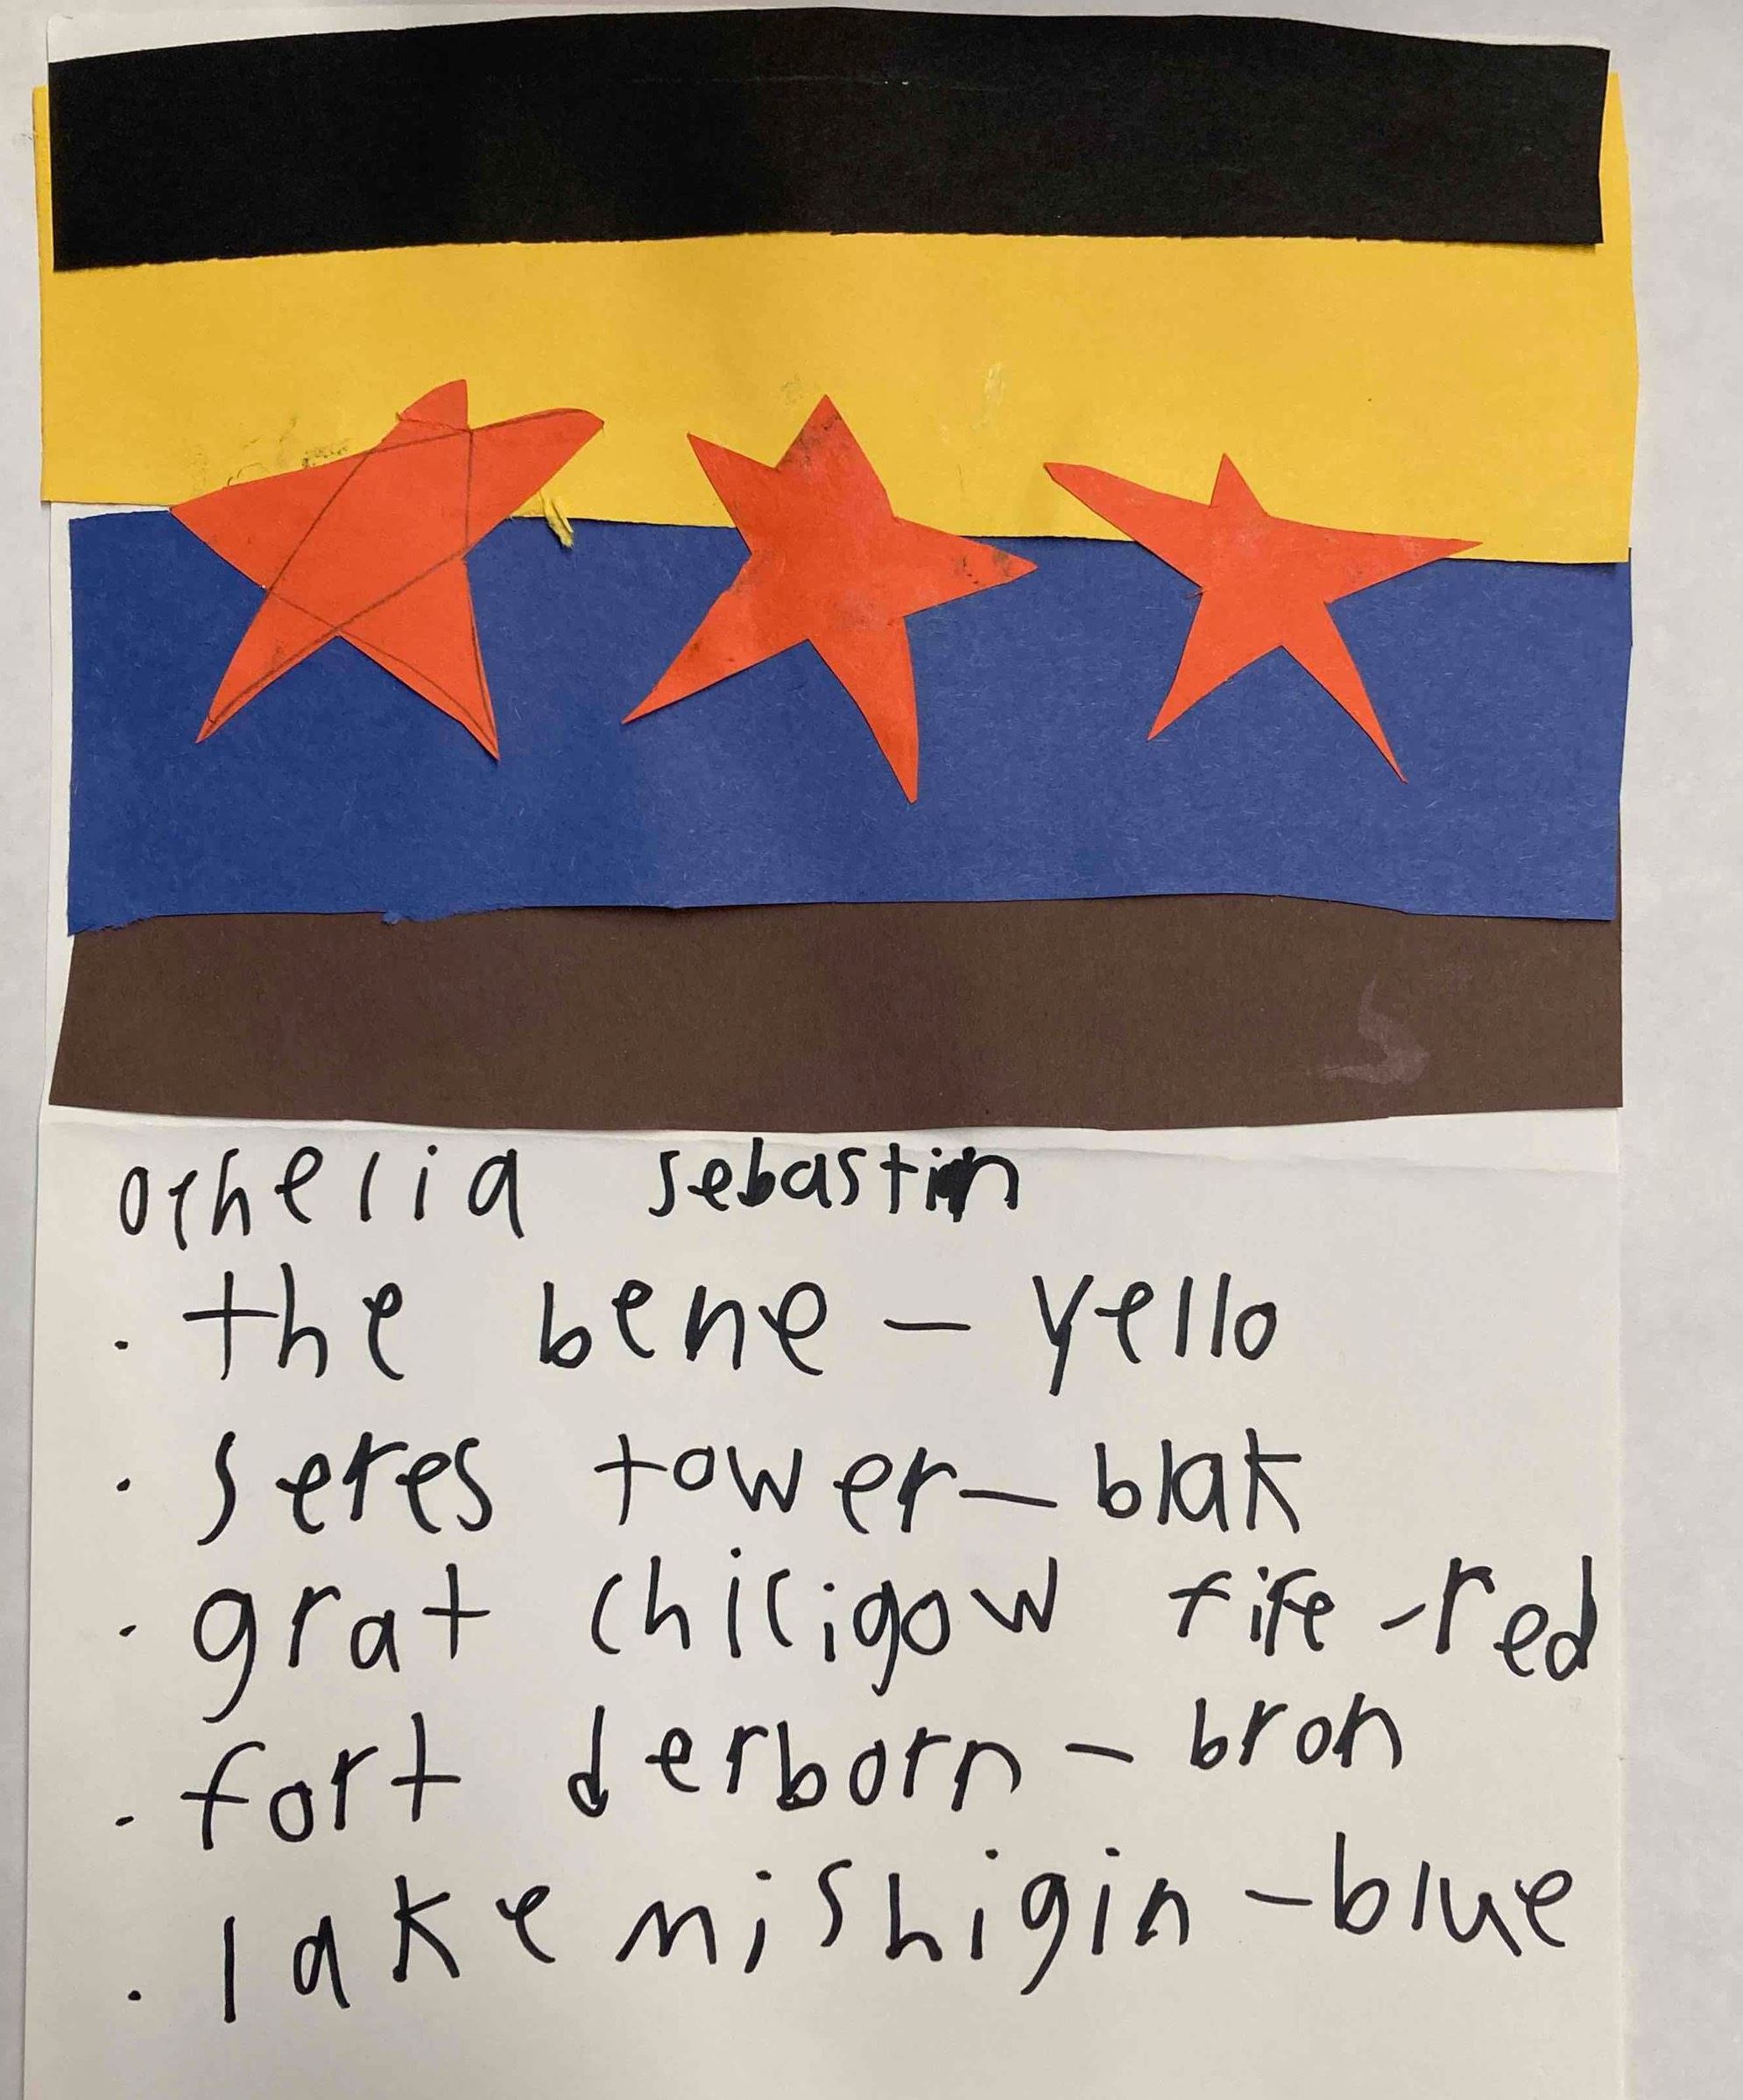 othelia sebastin
· the bene – yello
· seres tower – blak
· grat chicigow fire – red
· fort derborn – bron
· lake mishigin – blue